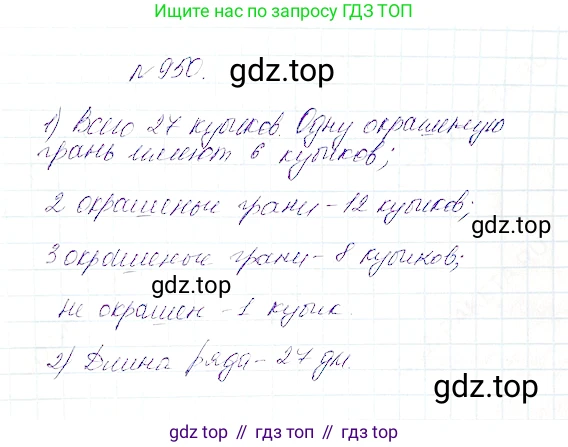 Ищите нас по запросу ГДЗ ТОП
№950.
gdz.top
1) Всего 27 кубиков. Одну окрашеную
грань имеют 6 кубиков;
2 окрашеные грани - 12 кубиков;
gdz.top
3 окрашеные грани - 8 кубиков;
gdz.top
Не окрашен - 1 кубик.
2) Длина ряда - 27 дм.
gdz.top
gdz.top // гдз топ // gdz.top